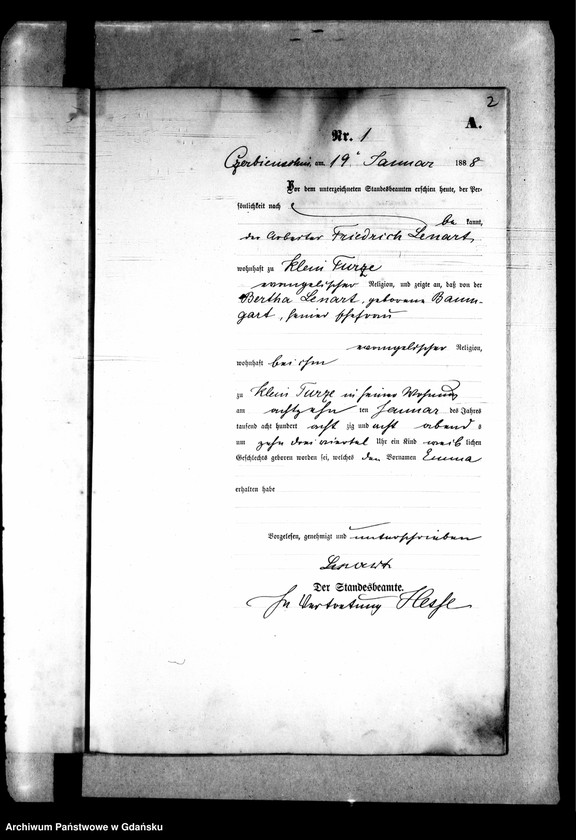 2
A.
Nr. 1
Czerbienschin, am 19. Januar 1888
Vor dem unterzeichneten Standesbeamten erschien heute, der Per-
sönlichkeit nach
be kannt,
der Arbeiter Friedrich Lenart,
wohnhaft zu Klein Turze
evangelischer Religion, und zeigte an, daß von der
Bertha Lenart, geborene Baum-
gart, seiner Ehefrau
evangelischer Religion,
wohnhaft bei ihm
zu Klein Turze in seiner Wohnung
am achtzehn ten Januar des Jahres
tausend acht hundert acht zig und acht abend s
um zehn drei viertel Uhr ein Kind weib lichen
Geschlechts geboren worden sei, welches den Vornamen Emma
erhalten habe
Vorgelesen, genehmigt und unterschrieben
Lenart
Der Standesbeamte.
In Vertretung Hesse
Archiwum Państwowe w Gdańsku